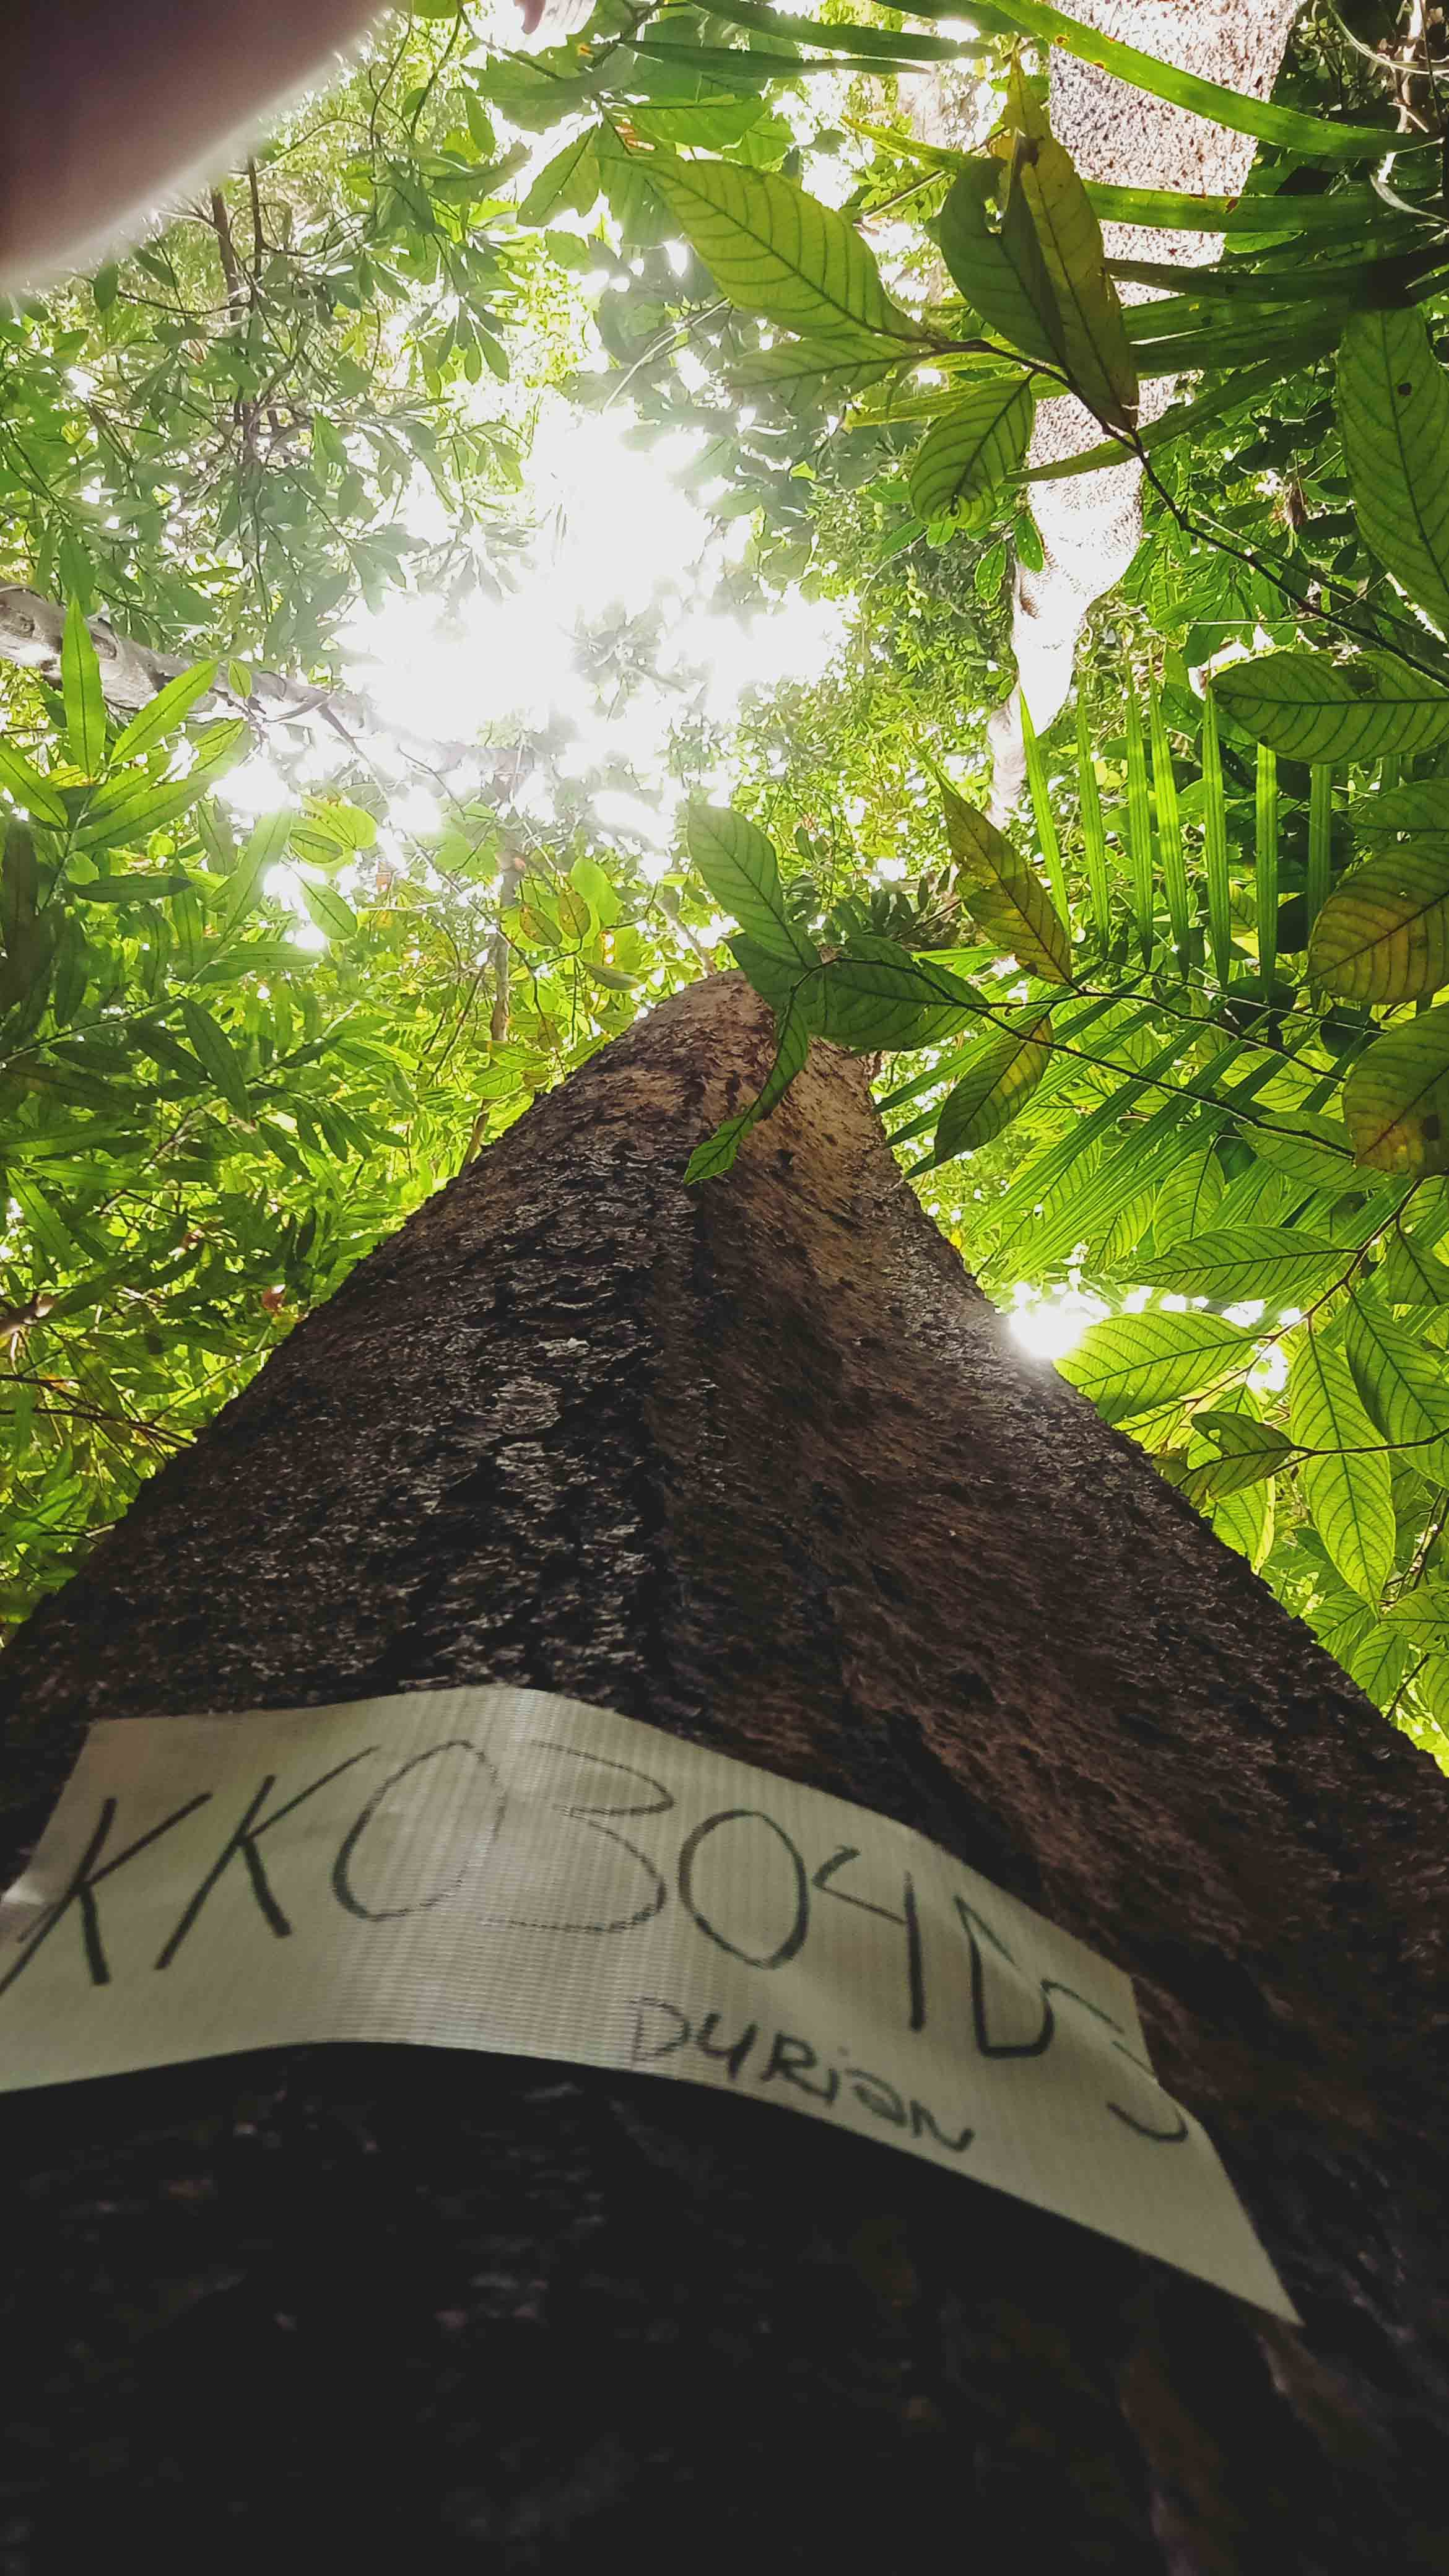 KK0304D3
DURian